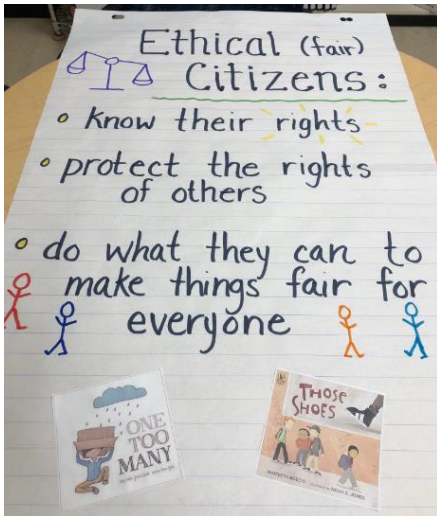 Ethical (fair)
Citizens:
know their rights
protect the rights
of others
do what they can to
make things fair for
everyone
ONE
TOO
MANY
THOSE
SHOES